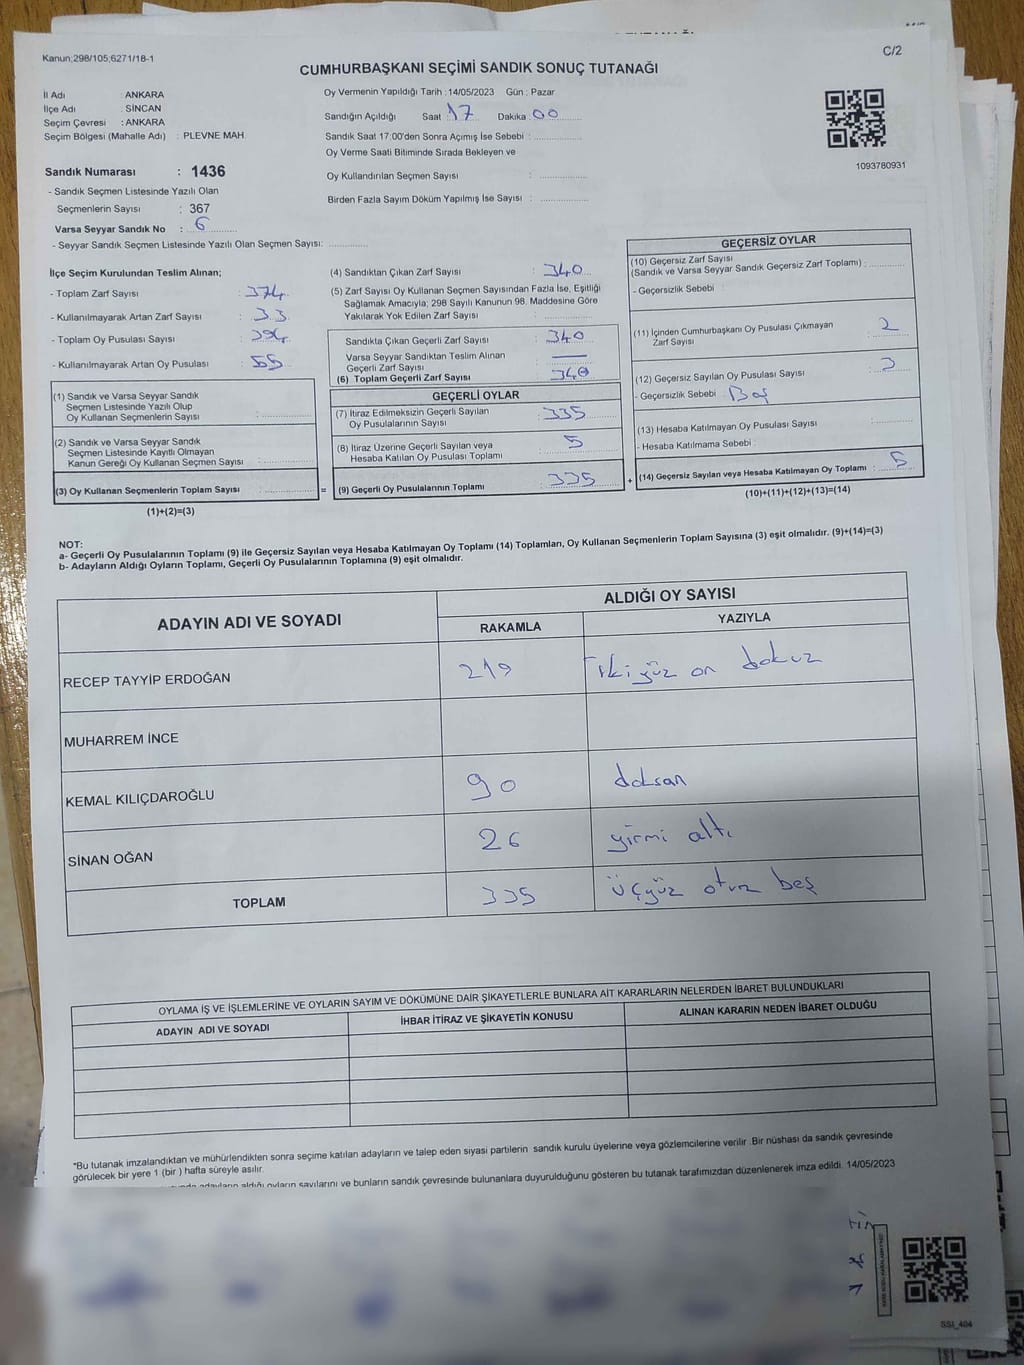 Kanun;298/105;6271/18-1
C/2
CUMHURBAŞKANI SEÇİMİ SANDIK SONUÇ TUTANAĞI
İl Adı : ANKARA
İlçe Adı : SİNCAN
Seçim Çevresi : ANKARA
Seçim Bölgesi (Mahalle Adı) : PLEVNE MAH.
Sandık Numarası : 1436
- Sandık Seçmen Listesinde Yazılı Olan
Seçmenlerin Sayısı : 367
Varsa Seyyar Sandık No : 6
- Seyyar Sandık Seçmen Listesinde Yazılı Olan Seçmen Sayısı:
Oy Vermenin Yapıldığı Tarih : 14/05/2023 Gün : Pazar
Sandığın Açıldığı Saat 17 Dakika 00
Sandık Saat 17:00'den Sonra Açımış İse Sebebi :
Oy Verme Saati Bitiminde Sırada Bekleyen ve
Oy Kullandırılan Seçmen Sayısı :
Birden Fazla Sayım Döküm Yapılmış İse Sayısı :
1093780931
İlçe Seçim Kurulundan Teslim Alınan;
- Toplam Zarf Sayısı : 374
- Kullanılmayarak Artan Zarf Sayısı : 33
- Toplam Oy Pusulası Sayısı :
- Kullanılmayarak Artan Oy Pusulası : 55
(1) Sandık ve Varsa Seyyar Sandık
Seçmen Listesinde Yazılı Olup
Oy Kullanan Seçmenlerin Sayısı :
(2) Sandık ve Varsa Seyyar Sandık
Seçmen Listesinde Kayıtlı Olmayan
Kanun Gereği Oy Kullanan Seçmen Sayısı :
(3) Oy Kullanan Seçmenlerin Toplam Sayısı :
=
(1)+(2)=(3)
(4) Sandıktan Çıkan Zarf Sayısı : 340
(5) Zarf Sayısı Oy Kullanan Seçmen Sayısından Fazla İse, Eşitliği
Sağlamak Amacıyla; 298 Sayılı Kanunun 98. Maddesine Göre
Yakılarak Yok Edilen Zarf Sayısı :
Sandıkta Çıkan Geçerli Zarf Sayısı : 340
Varsa Seyyar Sandıktan Teslim Alınan
Geçerli Zarf Sayısı : —
(6) Toplam Geçerli Zarf Sayısı : 340
GEÇERLİ OYLAR
(7) İtiraz Edilmeksizin Geçerli Sayılan
Oy Pusulalarının Sayısı : 335
(8) İtiraz Üzerine Geçerli Sayılan veya
Hesaba Katılan Oy Pusulası Toplamı : 5
(9) Geçerli Oy Pusulalarının Toplamı : 335
+
GEÇERSİZ OYLAR
(10) Geçersiz Zarf Sayısı
(Sandık ve Varsa Seyyar Sandık Geçersiz Zarf Toplamı) :
- Geçersizlik Sebebi :
(11) İçinden Cumhurbaşkanı Oy Pusulası Çıkmayan
Zarf Sayısı : 2
(12) Geçersiz Sayılan Oy Pusulası Sayısı : 3
- Geçersizlik Sebebi : Boş
(13) Hesaba Katılmayan Oy Pusulası Sayısı :
- Hesaba Katılmama Sebebi :
(14) Geçersiz Sayılan veya Hesaba Katılmayan Oy Toplamı : 5
(10)+(11)+(12)+(13)=(14)
NOT:
a- Geçerli Oy Pusulalarının Toplamı (9) ile Geçersiz Sayılan veya Hesaba Katılmayan Oy Toplamı (14) Toplamları, Oy Kullanan Seçmenlerin Toplam Sayısına (3) eşit olmalıdır. (9)+(14)=(3)
b- Adayların Aldığı Oyların Toplamı, Geçerli Oy Pusulalarının Toplamına (9) eşit olmalıdır.
ADAYIN ADI VE SOYADI
ALDIĞI OY SAYISI
RAKAMLA YAZIYLA
RECEP TAYYİP ERDOĞAN 219 İkiyüz on dokuz
MUHARREM İNCE
KEMAL KILIÇDAROĞLU 90 doksan
SİNAN OĞAN 26 yirmi altı
TOPLAM 335 üçyüz otuz beş
OYLAMA İŞ VE İŞLEMLERİNE VE OYLARIN SAYIM VE DÖKÜMÜNE DAİR ŞİKAYETLERLE BUNLARA AİT KARARLARIN NELERDEN İBARET BULUNDUKLARI
ADAYIN ADI VE SOYADI İHBAR İTİRAZ VE ŞİKAYETİN KONUSU ALINAN KARARIN NEDEN İBARET OLDUĞU
*Bu tutanak imzalandıktan ve mühürlendikten sonra seçime katılan adayların ve talep eden siyasi partilerin sandık kurulu üyelerine veya gözlemcilerine verilir .Bir nüshası da sandık çevresinde
görülecek bir yere 1 (bir ) hafta süreyle asılır.
adayların aldığı oyların sayılarını ve bunların sandık çevresinde bulunanlara duyurulduğunu gösteren bu tutanak tarafımızdan düzenlenerek imza edildi. 14/05/2023
SSI_404